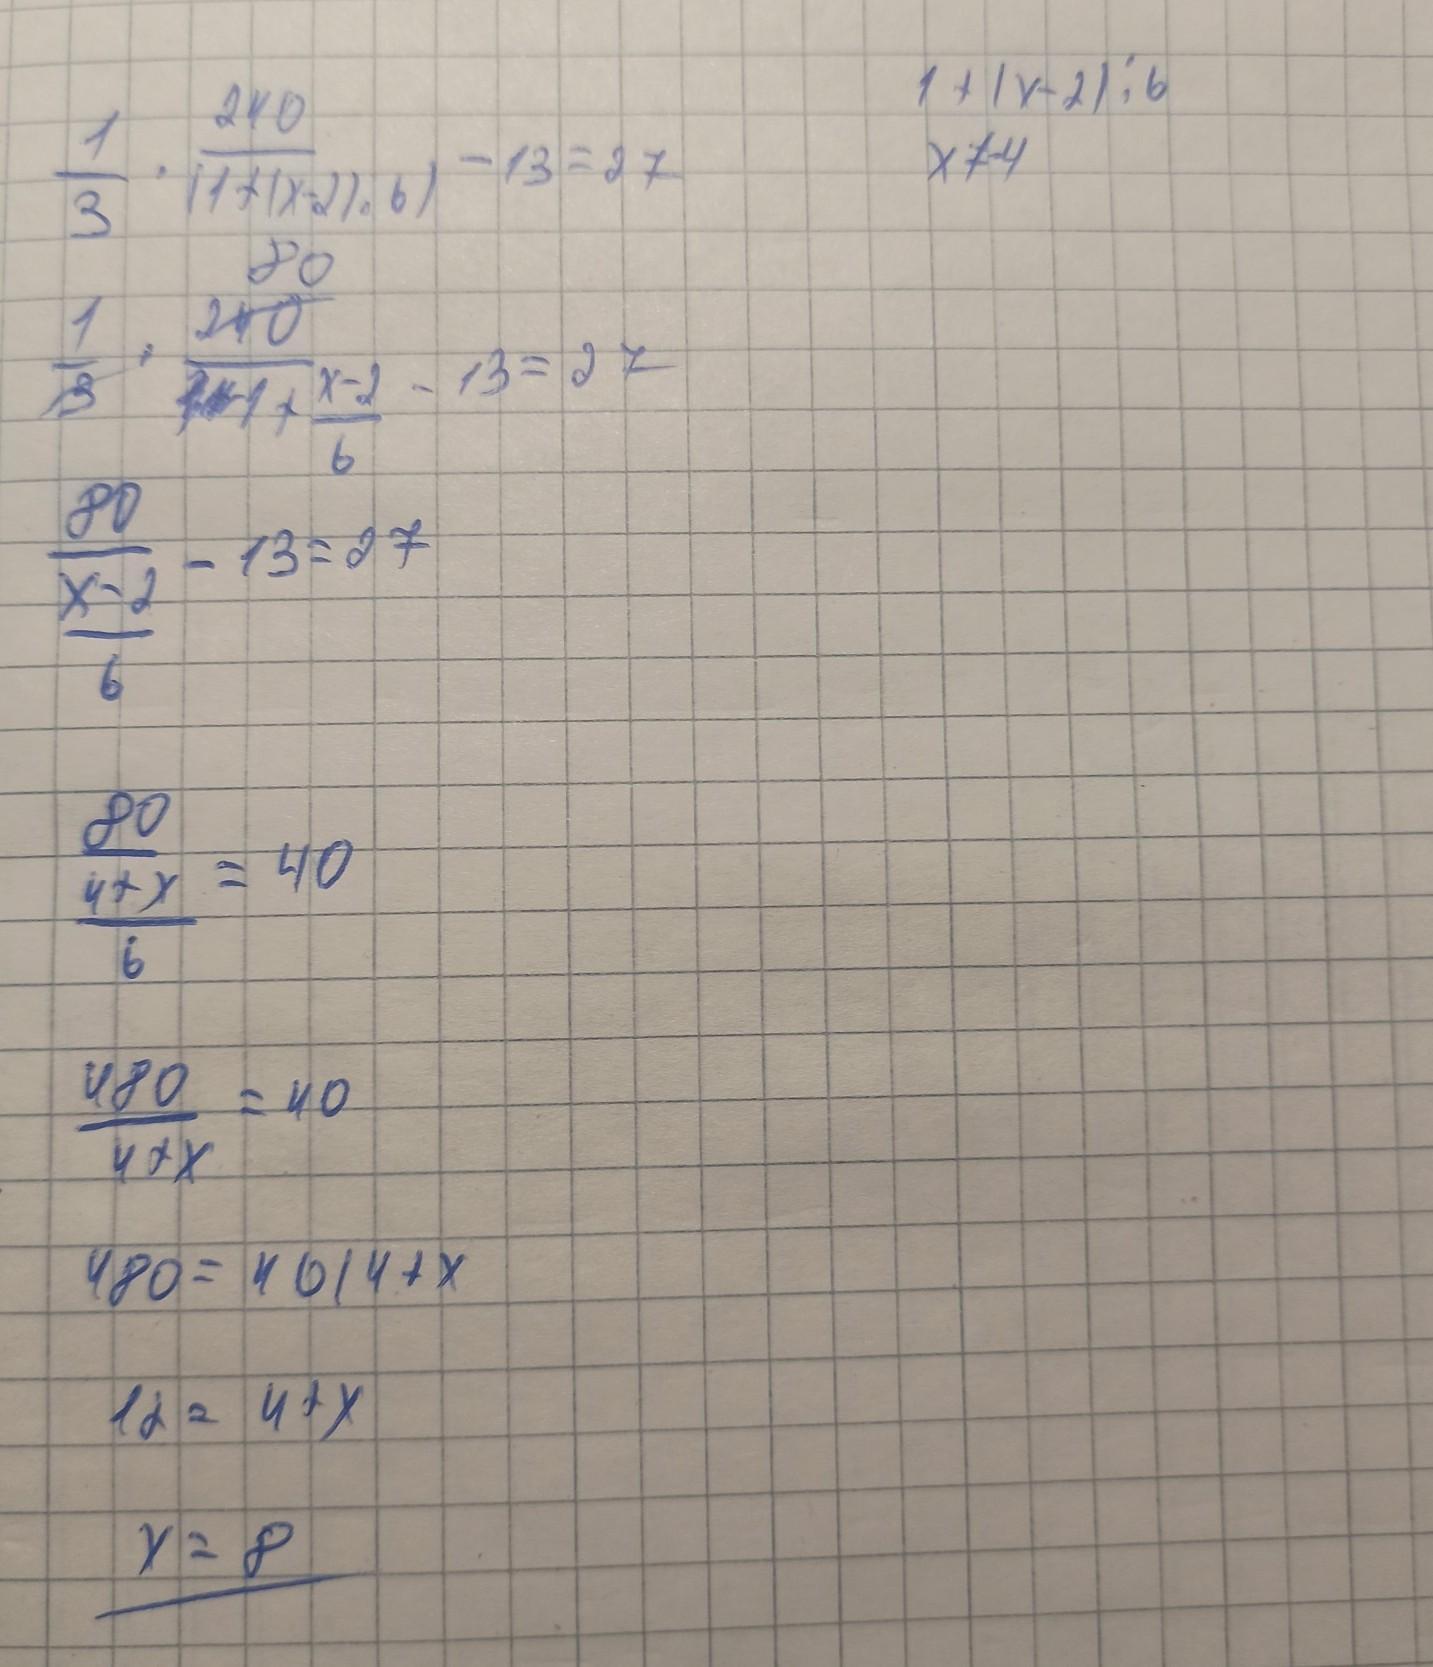 1/3 · 240/(1+(x-2):6) - 13 = 27
1+(x-2):6
x≠-4
1/3 · 240/(1+(x-2)/6) - 13 = 27
80
80/((x-2)/6) - 13 = 27
80/((4+x)/6) = 40
480/(4+x) = 40
480 = 40(4+x
12 = 4+x
x = 8